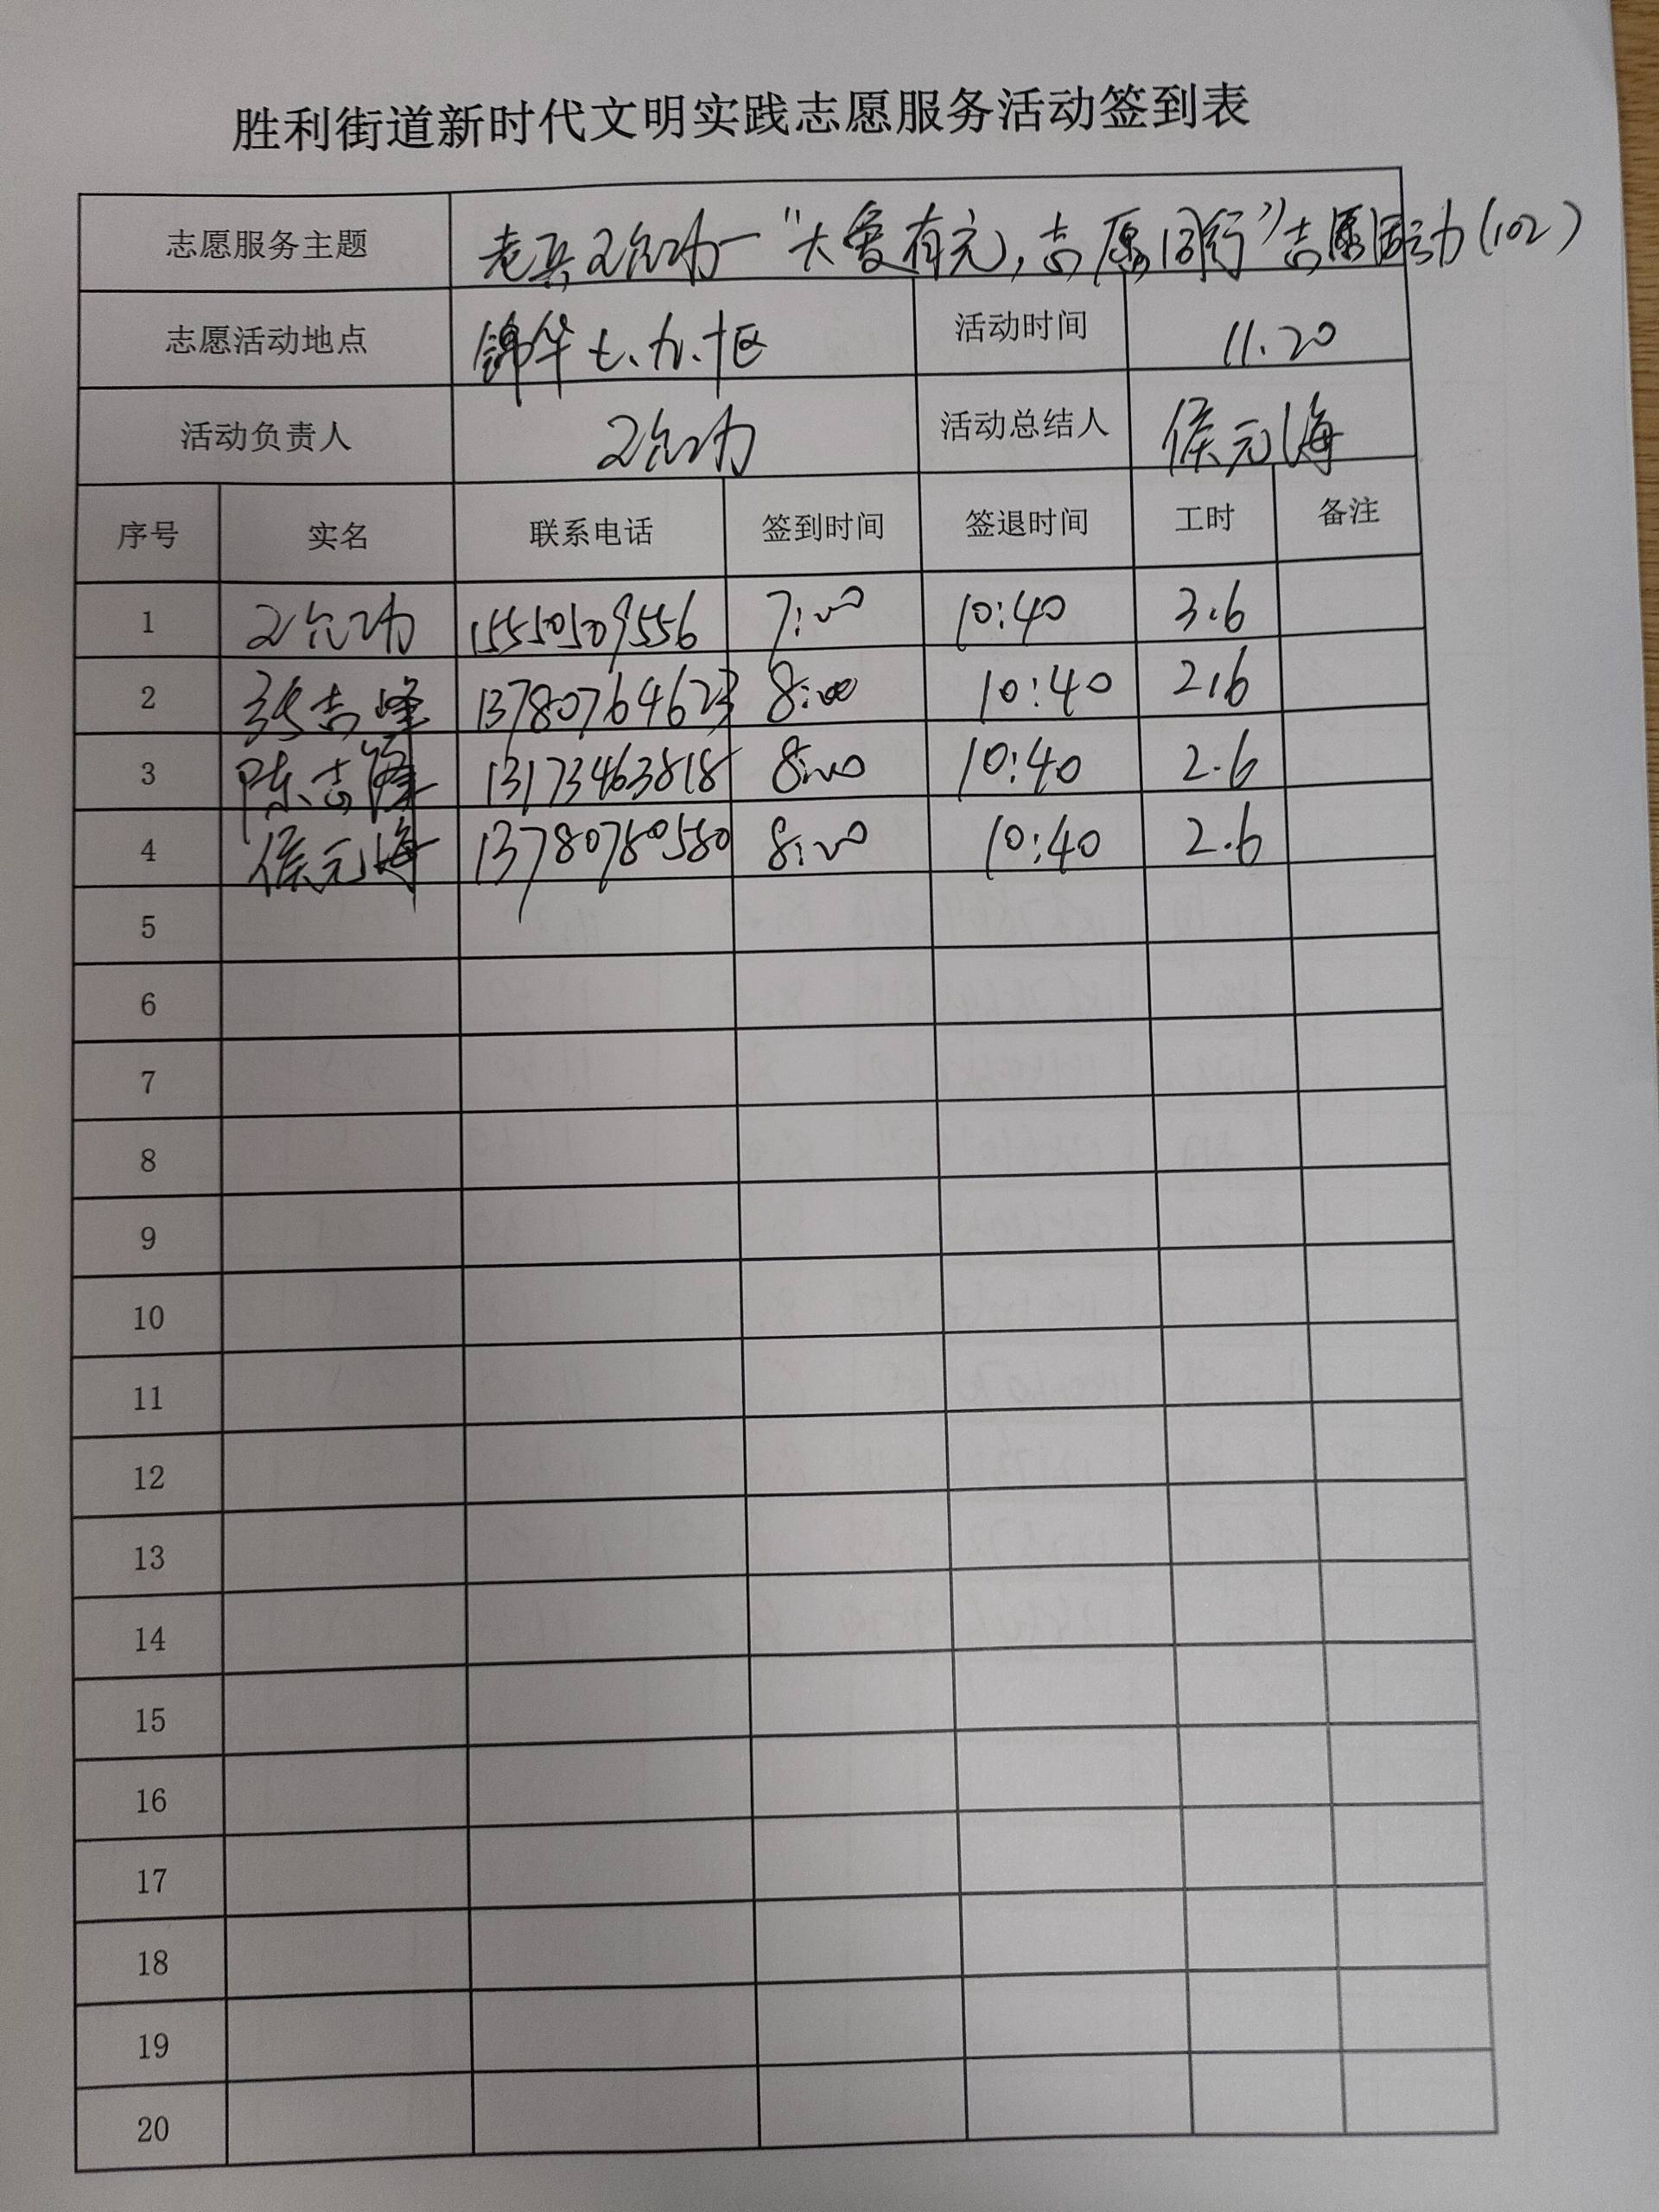 胜利街道新时代文明实践志愿服务活动签到表
志愿服务主题 老兵王允功一"大爱有元,志愿同行"志愿活动(102)
志愿活动地点 锦华七、九、十区 活动时间 11.20
活动负责人 王允功 活动总结人 侯元海
序号 实名 联系电话 签到时间 签退时间 工时 备注
1 王允功 15550509556 7:00 10:40 3.6
2 张志峰 13780764623 8:00 10:40 2.6
3 陈志隆 13173463818 8:00 10:40 2.6
4 侯元海 13780780580 8:00 10:40 2.6
5
6
7
8
9
10
11
12
13
14
15
16
17
18
19
20